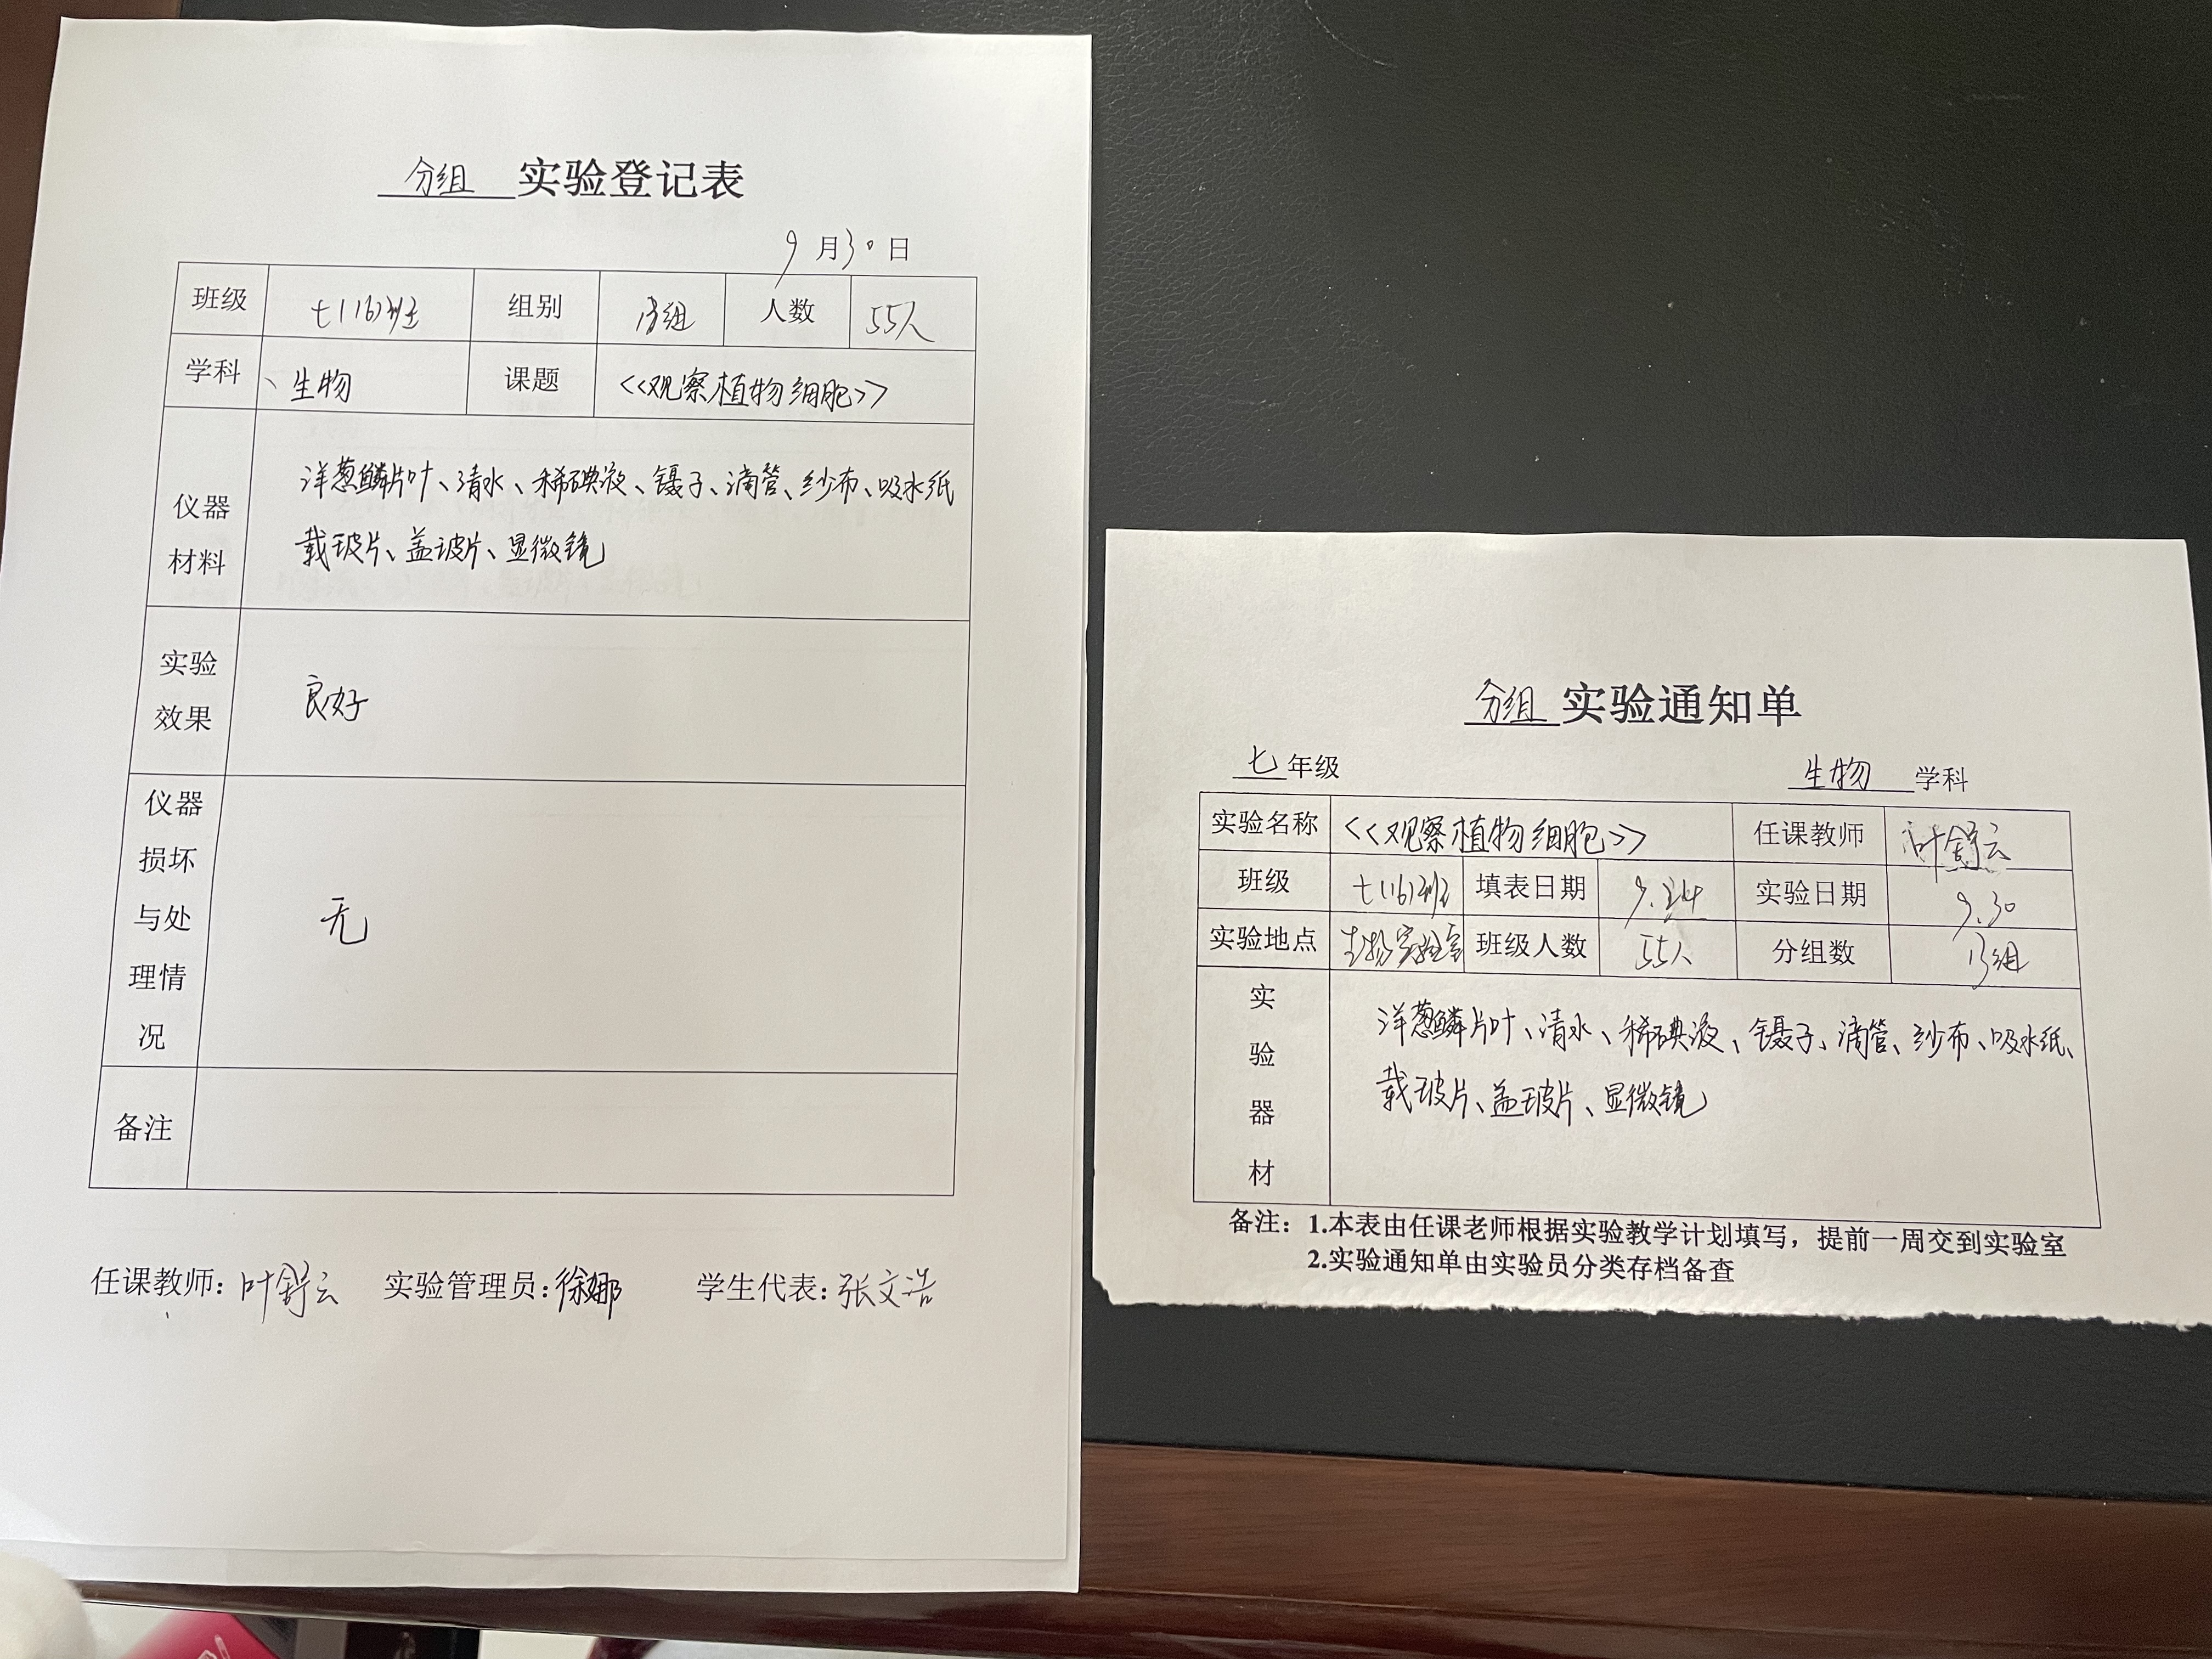 分组 实验登记表
9月30日
班级 七(16)班 组别 13组 人数 55人
学科 、生物 课题 <<观察植物细胞>>
仪器材料 洋葱鳞片叶、清水、稀碘液、镊子、滴管、纱布、吸水纸
载玻片、盖玻片、显微镜
实验效果 良好
仪器损坏与处理情况 无
备注
任课教师:叶舒云 实验管理员:徐娜 学生代表:张文浩
分组 实验通知单
七 年级 生物 学科
实验名称 <<观察植物细胞>> 任课教师 叶舒云
班级 七(16)班 填表日期 9.24 实验日期 9.30
实验地点 生物实验室 班级人数 55人 分组数 13组
实验器材 洋葱鳞片叶、清水、稀碘液、镊子、滴管、纱布、吸水纸、
载玻片、盖玻片、显微镜
备注:1.本表由任课老师根据实验教学计划填写,提前一周交到实验室
2.实验通知单由实验员分类存档备查